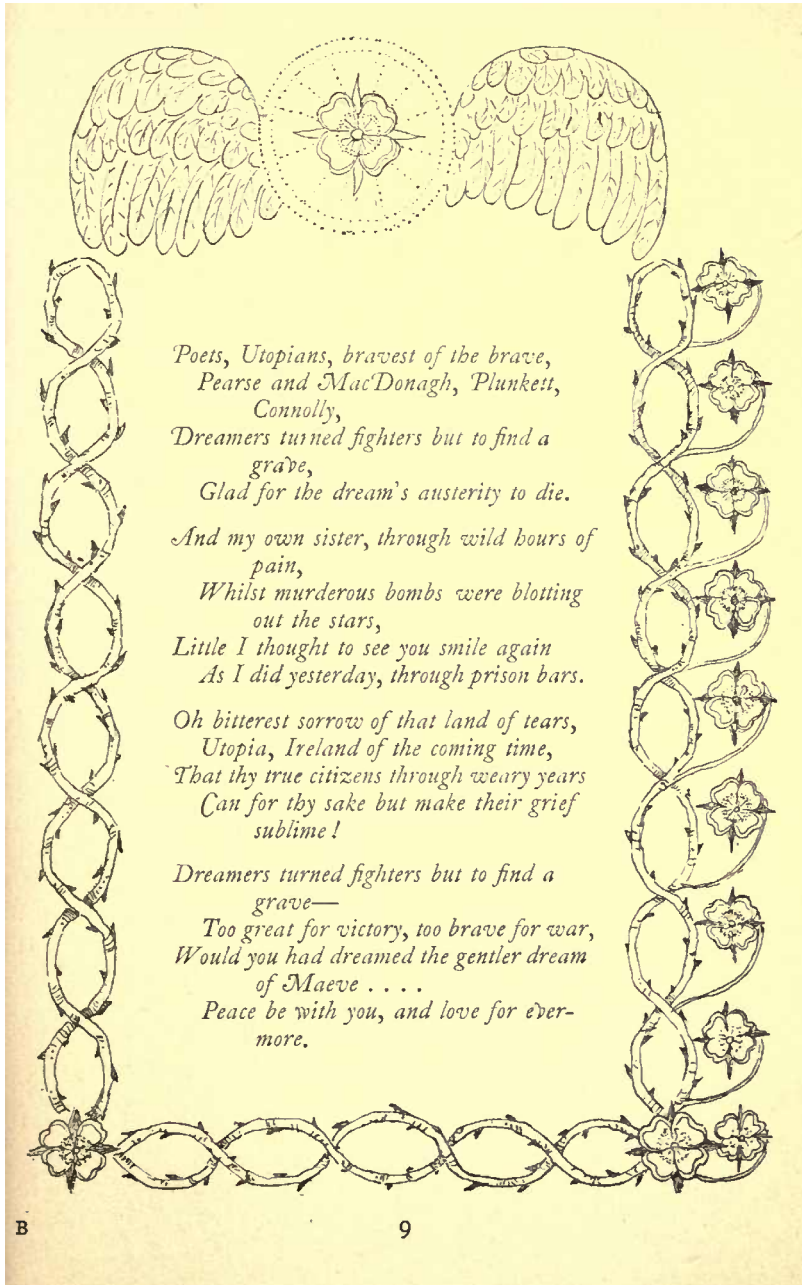 Poets, Utopians, bravest of the brave,
Pearse and MacDonagh, Plunkett,
Connolly,
Dreamers turned fighters but to find a
grave,
Glad for the dream's austerity to die.
And my own sister, through wild hours of
pain,
Whilst murderous bombs were blotting
out the stars,
Little I thought to see you smile again
As I did yesterday, through prison bars.
Oh bitterest sorrow of that land of tears,
Utopia, Ireland of the coming time,
That thy true citizens through weary years
Can for thy sake but make their grief
sublime !
Dreamers turned fighters but to find a
grave—
Too great for victory, too brave for war,
Would you had dreamed the gentler dream
of Maeve . . . .
Peace be with you, and love for ever-
more.
B 9